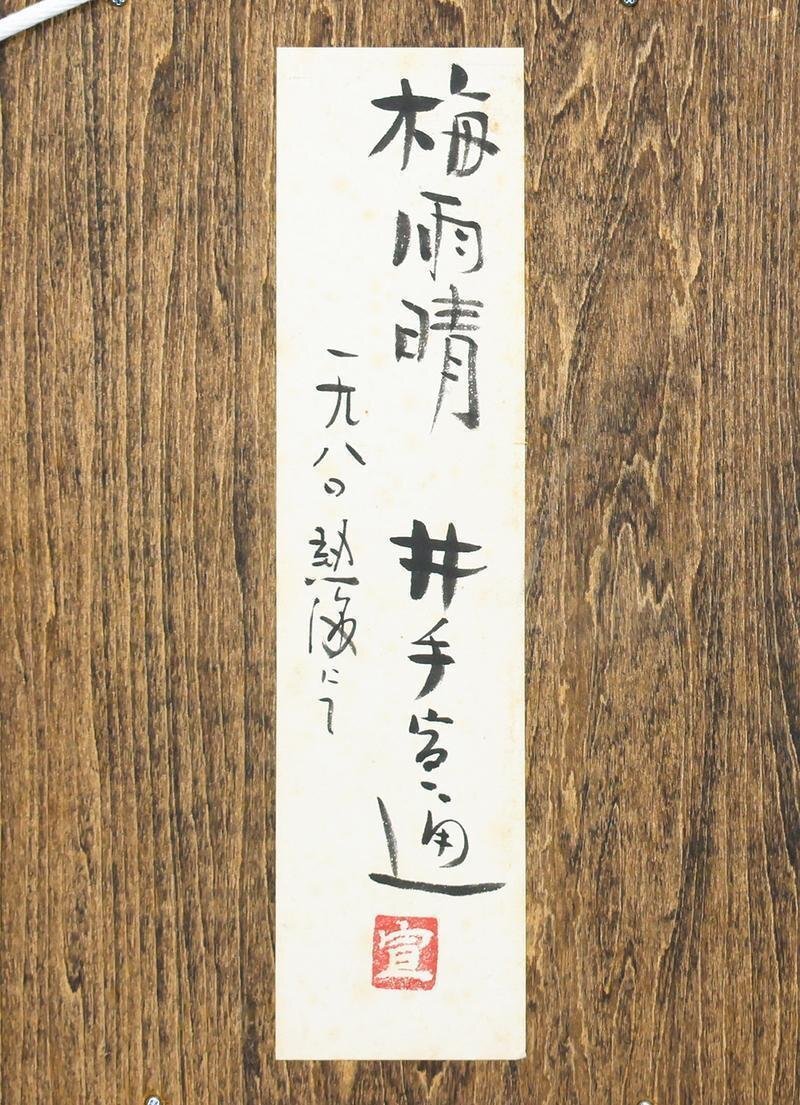 梅雨晴 井手宣通
一九八〇 熱海にて
宣